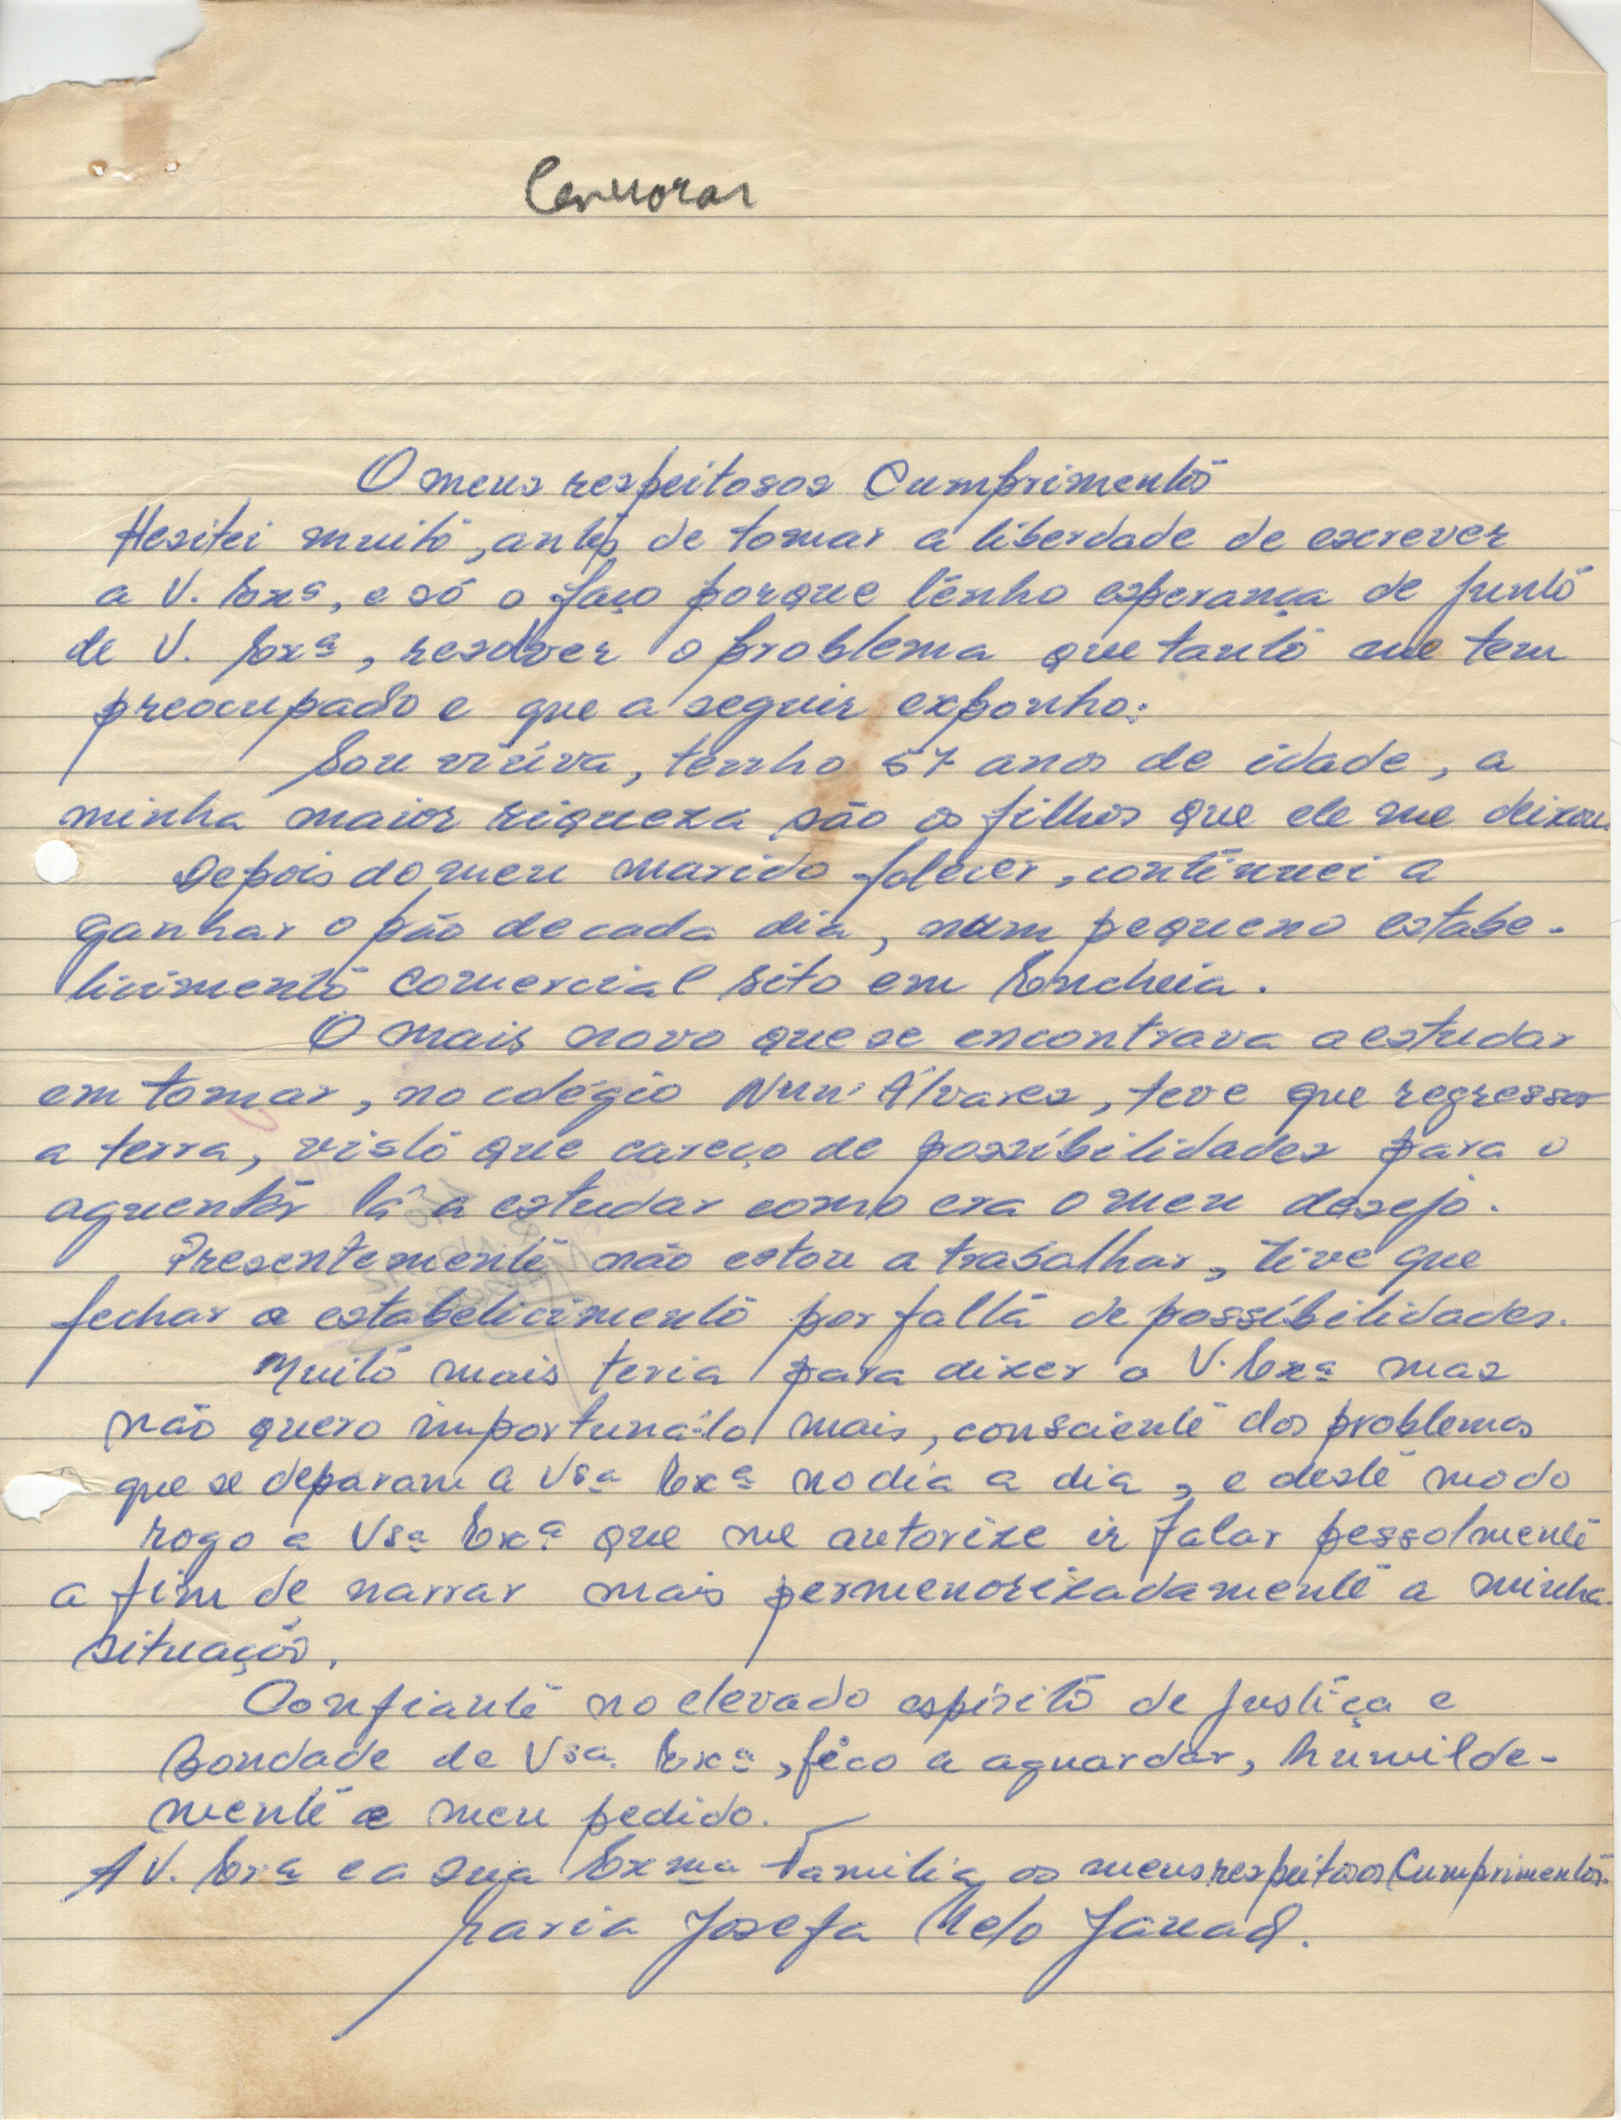 O meus respeitosos Cumprimentos
Hesitei muito, antes de tomar a liberdade de escrever
a V. Exª, e só o faço porque tenho esperança de junto
de V. Exª, resolver o problema que tanto me tem
preocupado e que a seguir exponho:
Sou viúva, tenho 57 anos de idade, a
minha maior riqueza são os filhos que ele me deixou.
Depois do meu marido falecer, continuei a
ganhar o pão de cada dia, num pequeno estabe-
licimento comercial sito em Encheia.
O mais novo que se encontrava a estudar
em tomar, no colégio Nun' Álvares, teve que regressar
a terra, visto que careço de possibilidades para o
aguentar lá a estudar como era o meu desejo.
Presentemente não estou a trabalhar, tive que
fechar o estabelicimento por falta de possibilidades.
Muito mais teria para dizer a V. Exª mas
não quero importuná-lo mais, consciente dos problemas
que se deparam a Vsª Exª no dia a dia, e deste modo
rogo a Vsª Exª que me autorize ir falar pessolmente
a fim de narrar mais permenorizadamente a minha
situação.
Confiante no elevado espírito de justiça e
Bondade de Vsª Exª, fico a aguardar, humilde-
mente o meu pedido.
A V. Exª e a sua Exma Família os meus respeitosos Cumprimentos.
Maria Josefa Melo